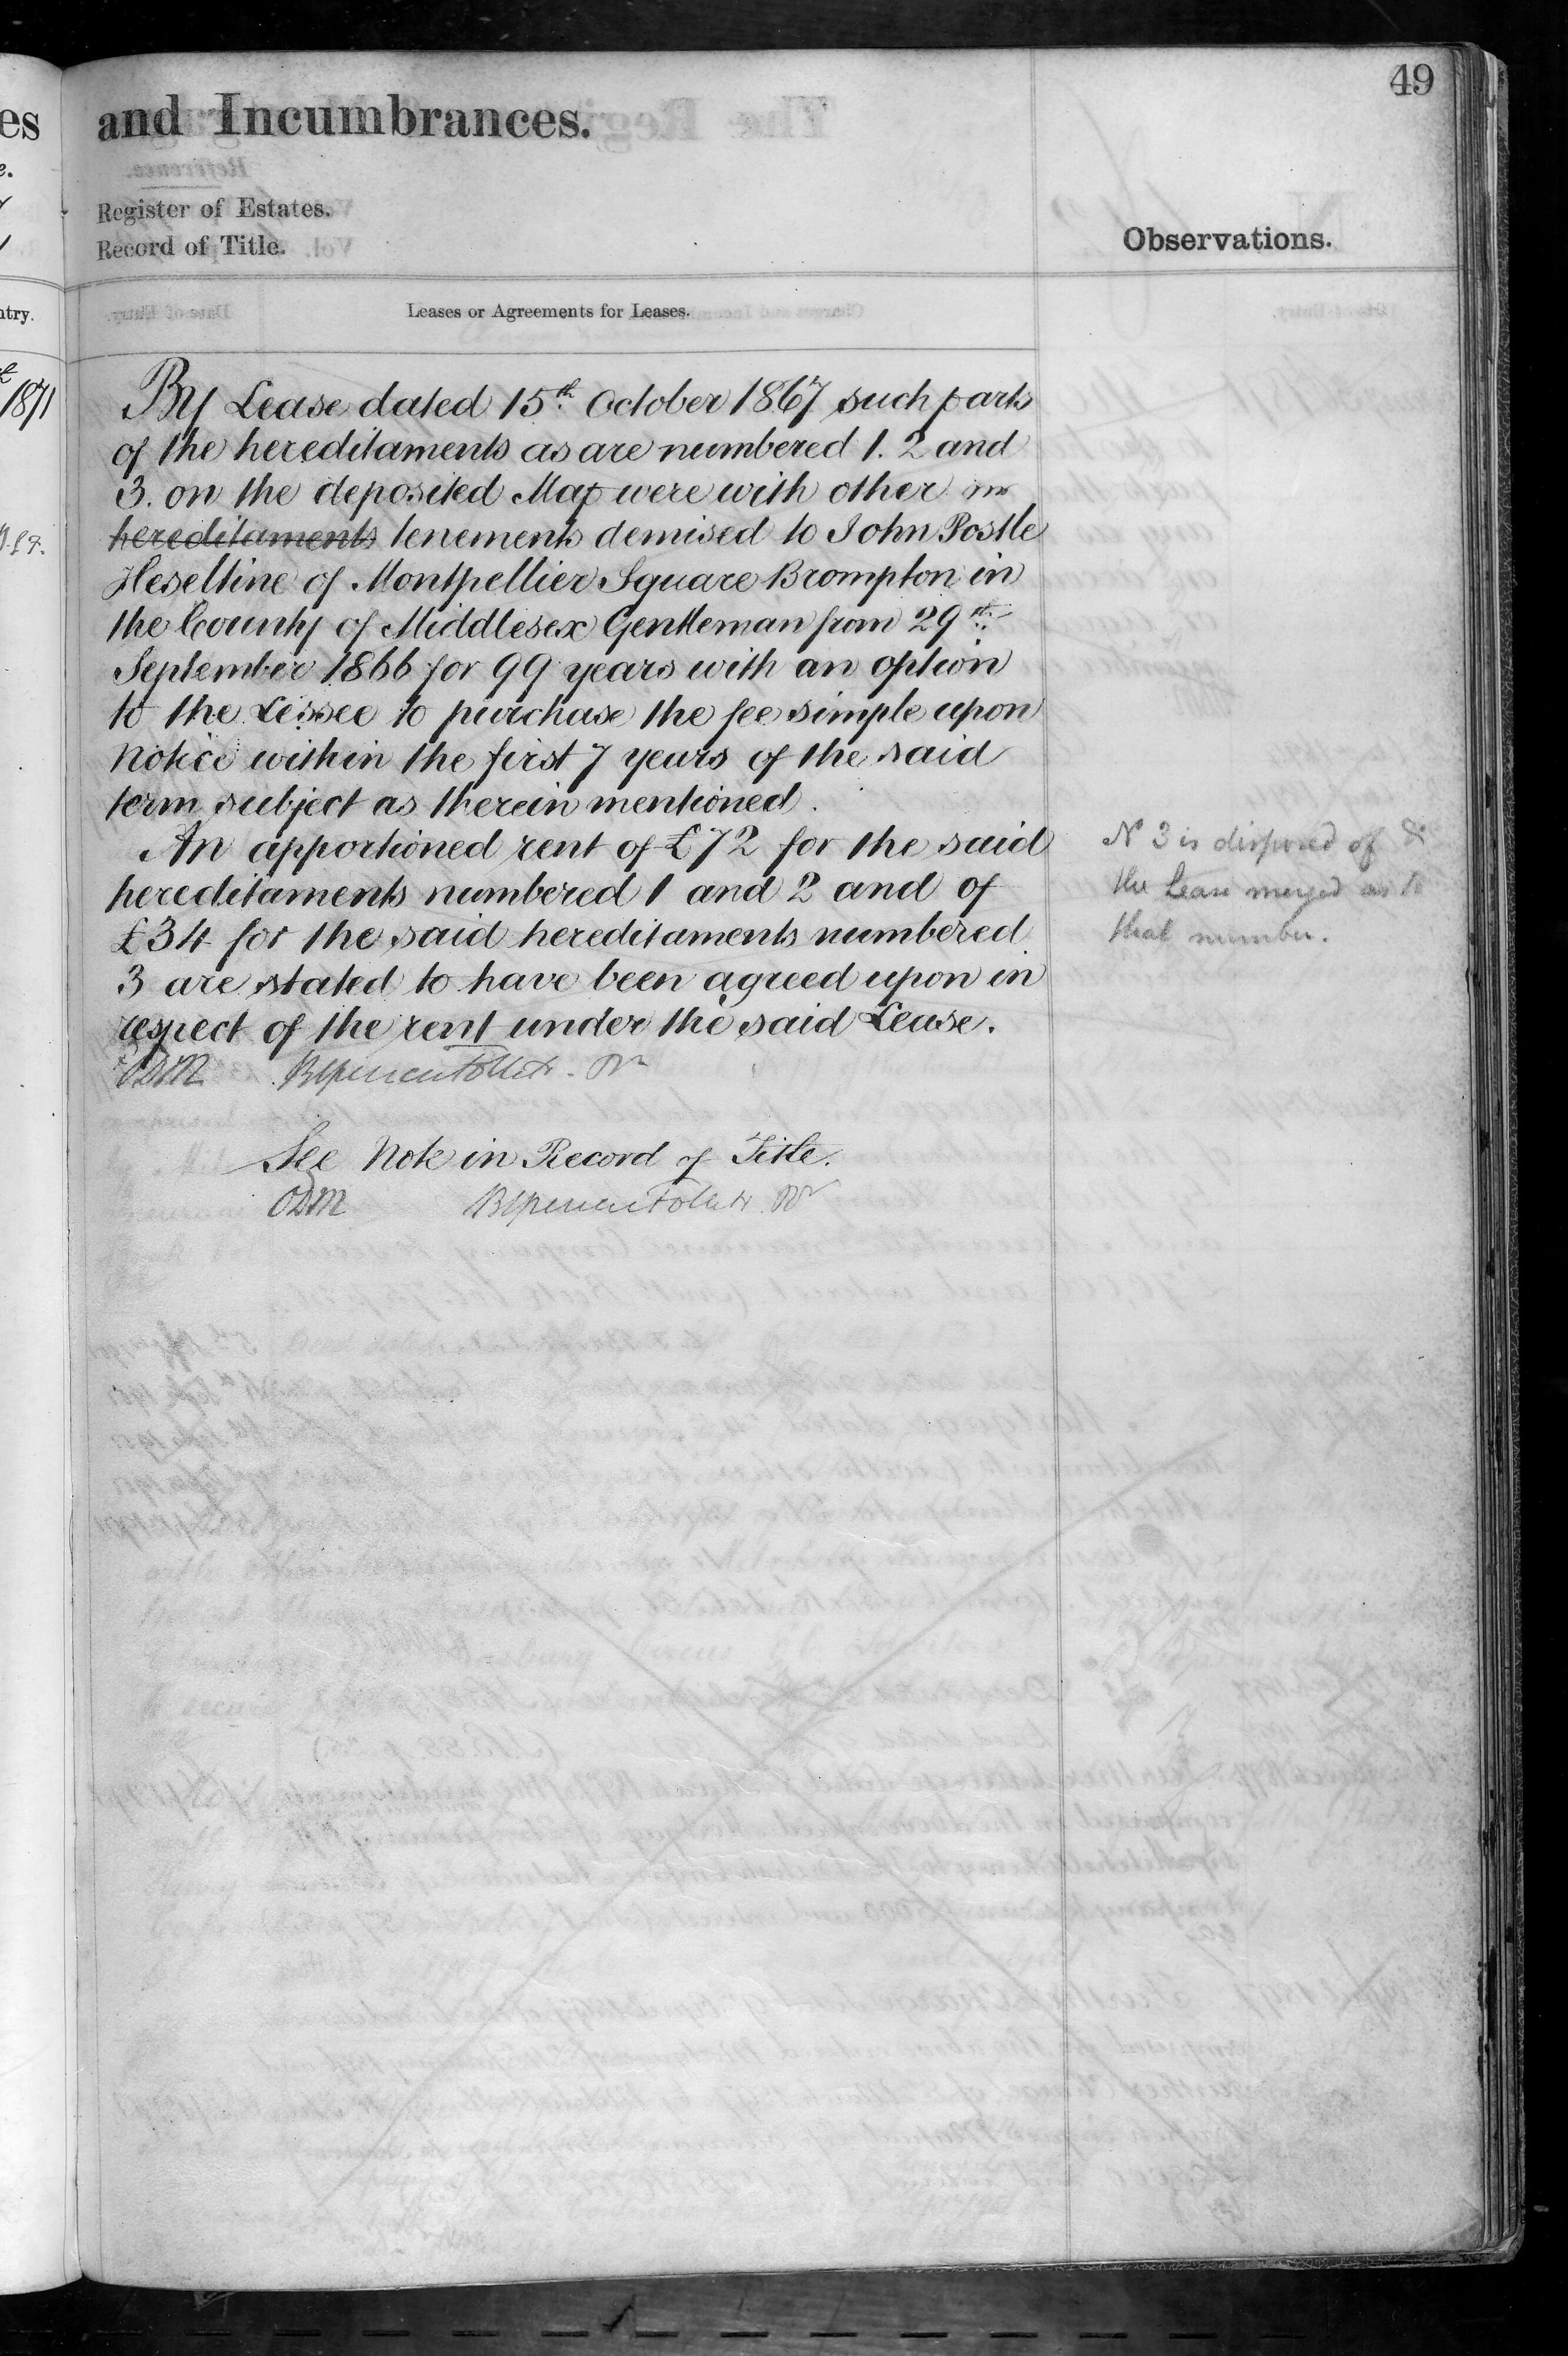 49
and Incumbrances.
Register of Estates.
Record of Title.
Observations.
Leases or Agreements for Leases.
By Lease dated 15th October 1867 such parts
of the hereditaments as are numbered 1. 2 and
3. on the deposited Map were with other
hereditaments tenements demised to John Postle
Heseltine of Montpellier Square Brompton in
the County of Middlesex Gentleman from 29th
September 1866 for 99 years with an option
to the Lessee to purchase the fee simple upon
notice within the first 7 years of the said
term subject as therein mentioned.
An apportioned rent of £72 for the said
hereditaments numbered 1 and 2 and of
£34 for the said hereditaments numbered
3 are stated to have been agreed upon in
respect of the rent under the said Lease.
ODM
N 3 is disposed of &
the Lease merged as to
that number.
See Note in Record of Title.
ODM
es
ntry.
1871